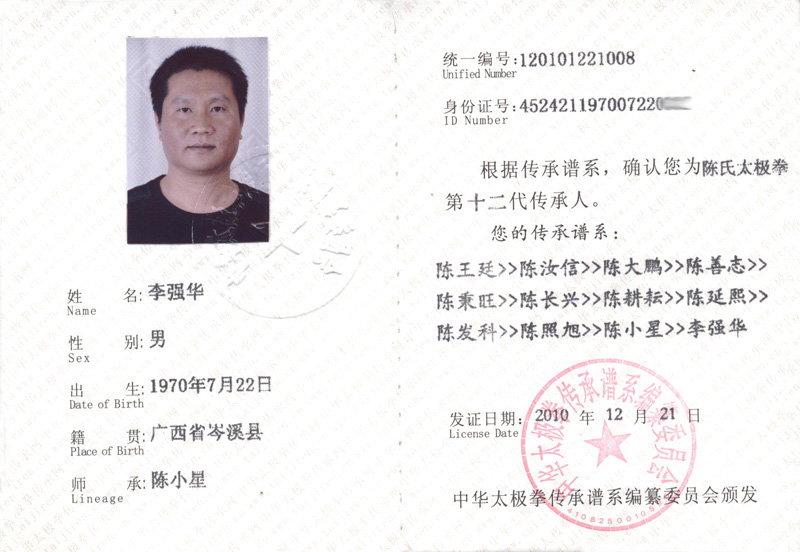 姓 名: 李强华
Name
性 别: 男
Sex
出 生: 1970年7月22日
Date of Birth
籍 贯: 广西省岑溪县
Place of Birth
师 承: 陈小星
Lineage
统一编号: 120101221008
Unified Number
身份证号: 452421197007220
ID Number
根据传承谱系，确认您为陈氏太极拳
第十二代传承人。
您的传承谱系：
陈王廷>>陈汝信>>陈大鹏>>陈善志>>
陈秉旺>>陈长兴>>陈耕耘>>陈延熙>>
陈发科>>陈照旭>>陈小星>>李强华
发证日期: 2010 年 12 月 21 日
License Date
中华太极拳传承谱系编纂委员会颁发
中华太极拳传承谱系编纂委员会